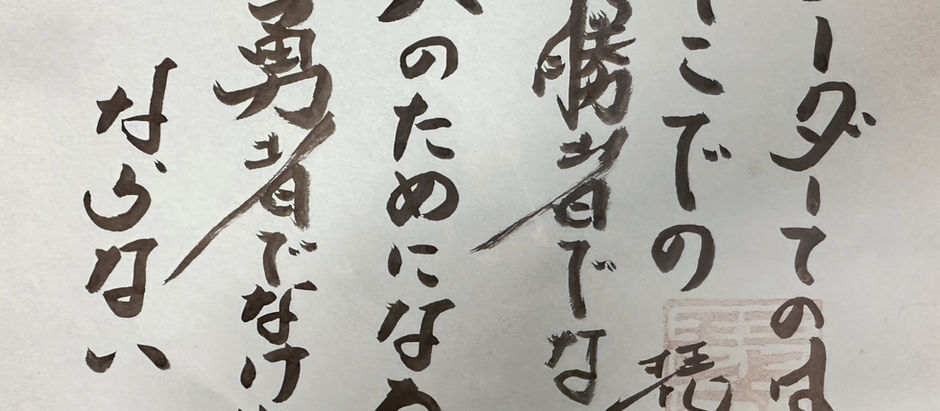 ーダーてのは
こでの
勝者でな
のためにな
勇者でなけ
ならない